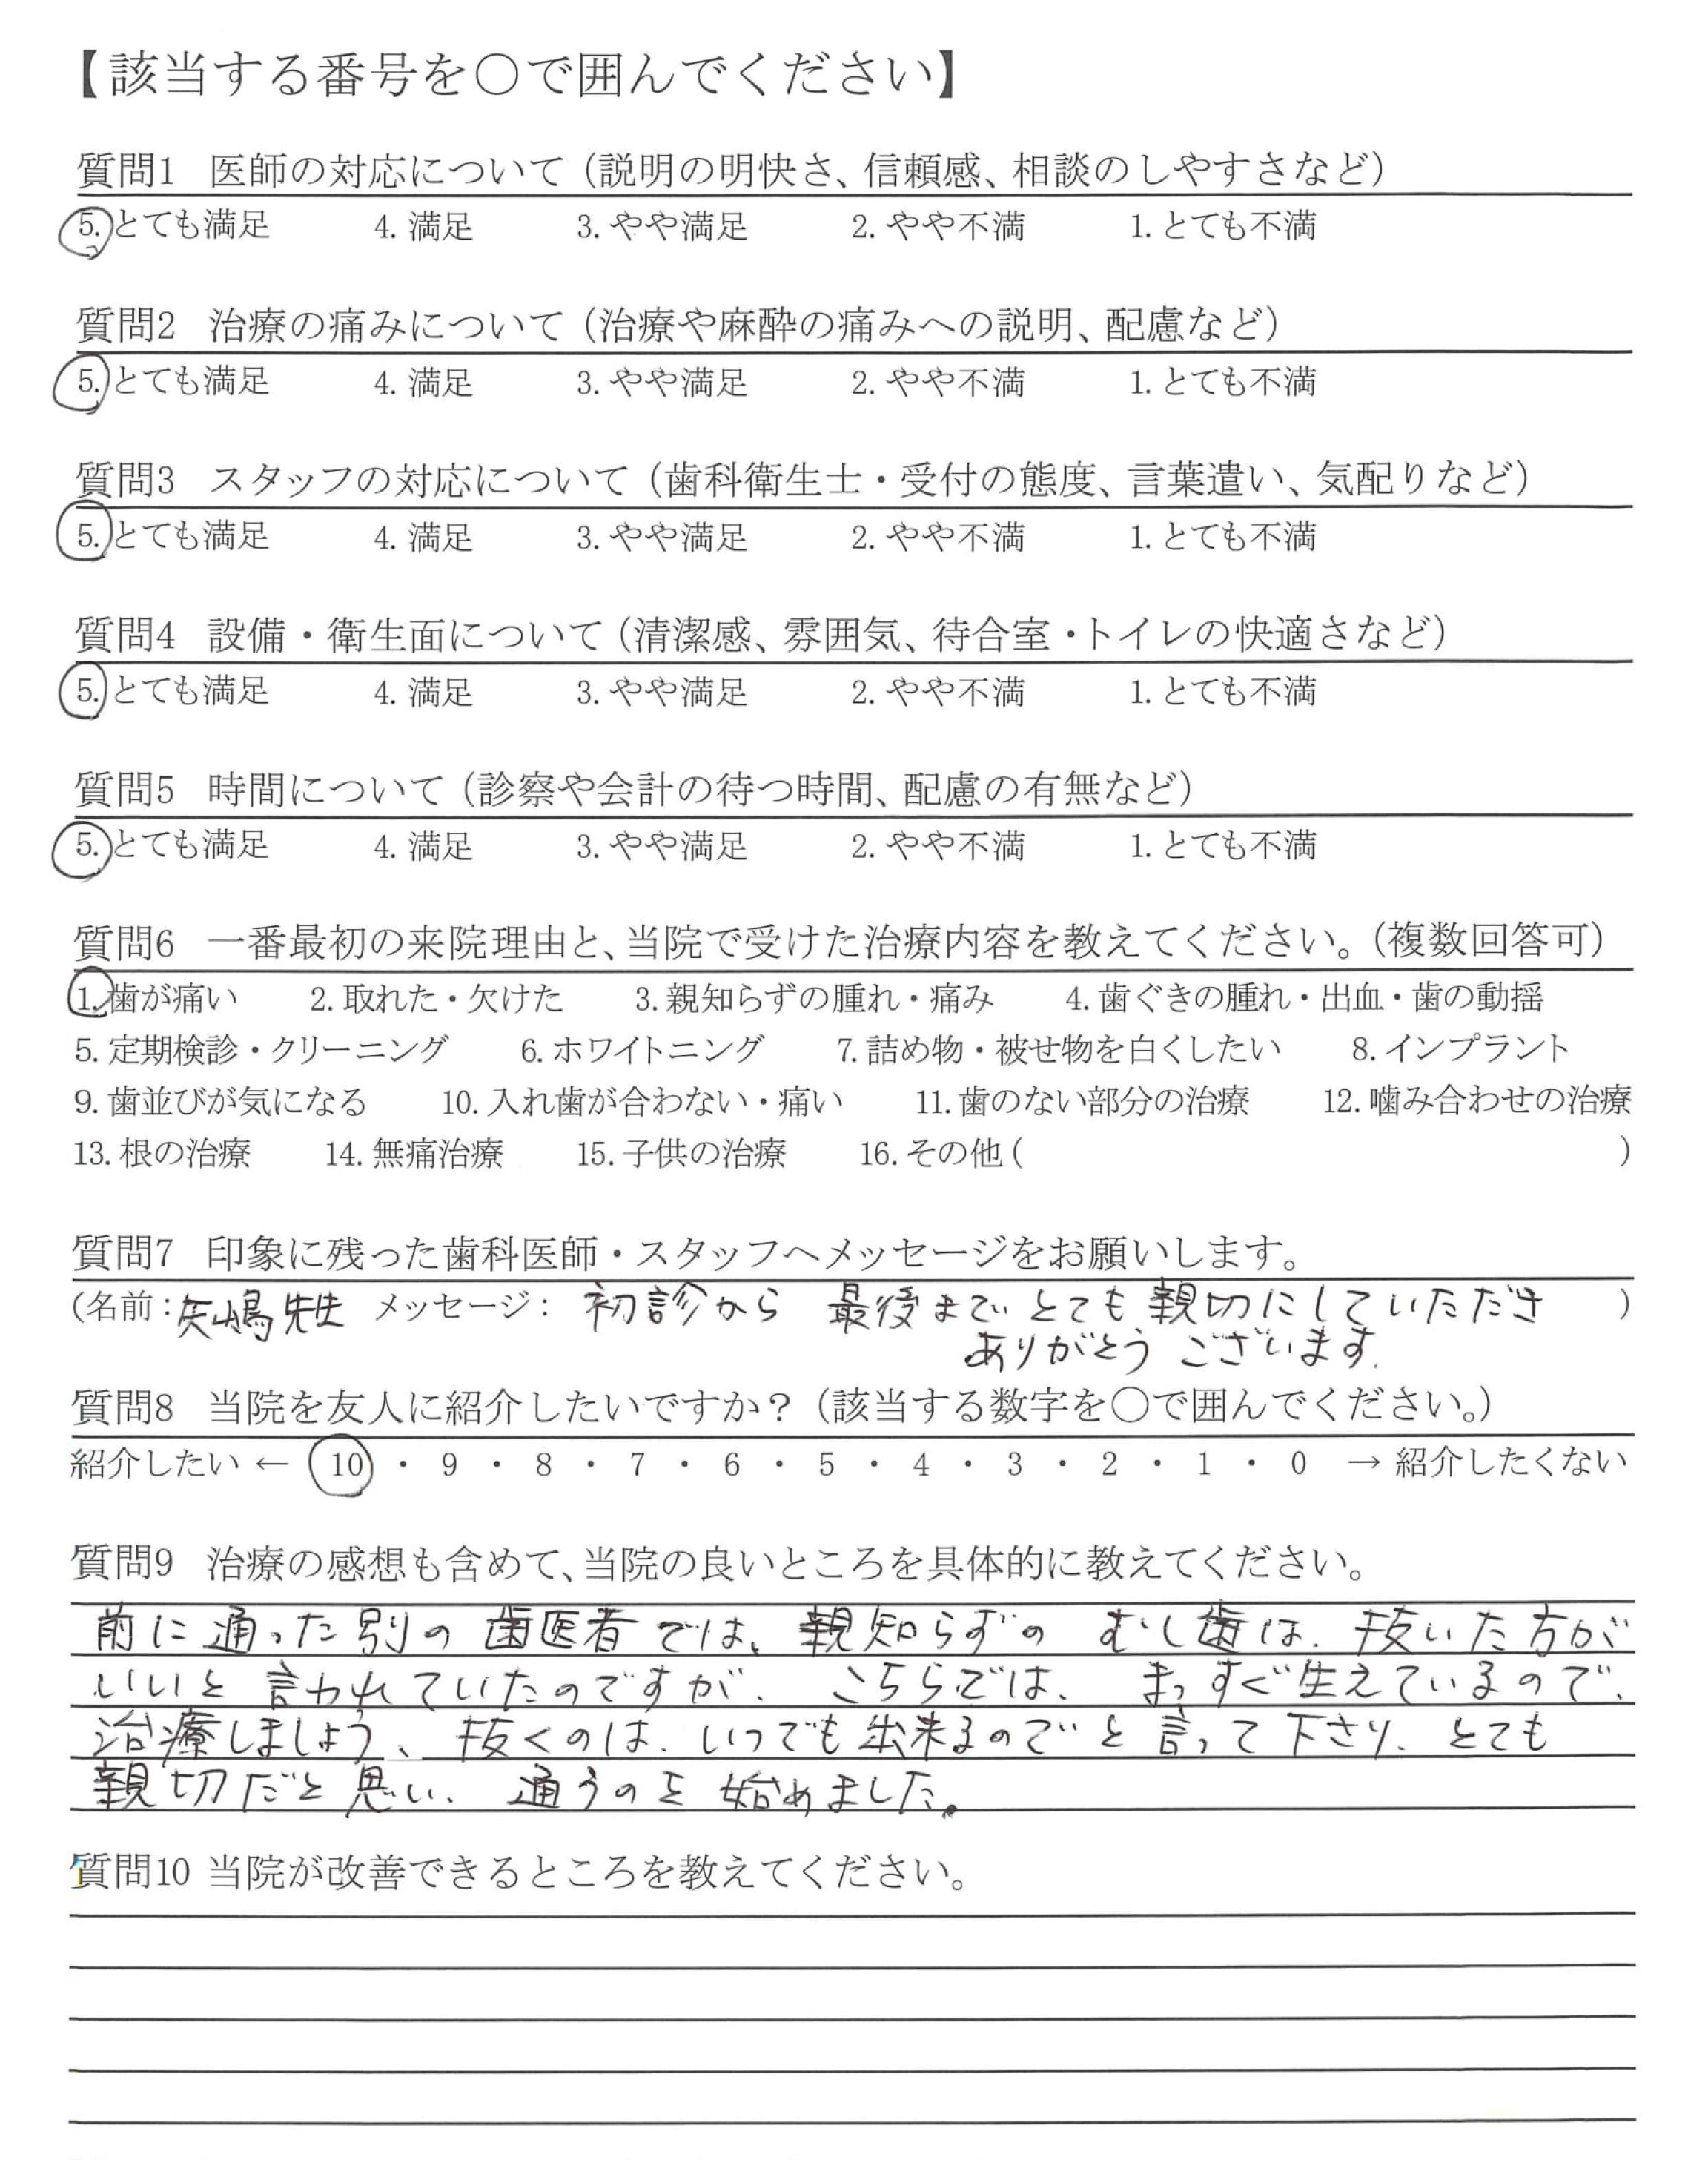 【該当する番号を〇で囲んでください】
質問1 医師の対応について（説明の明快さ、信頼感、相談のしやすさなど）
5. とても満足 4. 満足 3. やや満足 2. やや不満 1. とても不満
質問2 治療の痛みについて（治療や麻酔の痛みへの説明、配慮など）
5. とても満足 4. 満足 3. やや満足 2. やや不満 1. とても不満
質問3 スタッフの対応について（歯科衛生士・受付の態度、言葉遣い、気配りなど）
5. とても満足 4. 満足 3. やや満足 2. やや不満 1. とても不満
質問4 設備・衛生面について（清潔感、雰囲気、待合室・トイレの快適さなど）
5. とても満足 4. 満足 3. やや満足 2. やや不満 1. とても不満
質問5 時間について（診察や会計の待つ時間、配慮の有無など）
5. とても満足 4. 満足 3. やや満足 2. やや不満 1. とても不満
質問6 一番最初の来院理由と、当院で受けた治療内容を教えてください。（複数回答可）
1. 歯が痛い 2. 取れた・欠けた 3. 親知らずの腫れ・痛み 4. 歯ぐきの腫れ・出血・歯の動揺
5. 定期検診・クリーニング 6. ホワイトニング 7. 詰め物・被せ物を白くしたい 8. インプラント
9. 歯並びが気になる 10. 入れ歯が合わない・痛い 11. 歯のない部分の治療 12. 噛み合わせの治療
13. 根の治療 14. 無痛治療 15. 子供の治療 16. その他（ ）
質問7 印象に残った歯科医師・スタッフへメッセージをお願いします。
（名前：矢嶋先生 メッセージ： 初診から 最後まで とても親切にしていただき ）
ありがとう ございます.
質問8 当院を友人に紹介したいですか？（該当する数字を〇で囲んでください。）
紹介したい ← 10 ・ 9 ・ 8 ・ 7 ・ 6 ・ 5 ・ 4 ・ 3 ・ 2 ・ 1 ・ 0 → 紹介したくない
質問9 治療の感想も含めて、当院の良いところを具体的に教えてください。
前に通った別の歯医者では、親知らずの むし歯は、抜いた方が
いいと言われていたのですが、 こちらでは、 まっすぐ生えているので、
治療しましょう、 抜くのは、いつでも出来るのでと言って下さり、とても
親切だと思い、 通うのを始めました。
質問10 当院が改善できるところを教えてください。